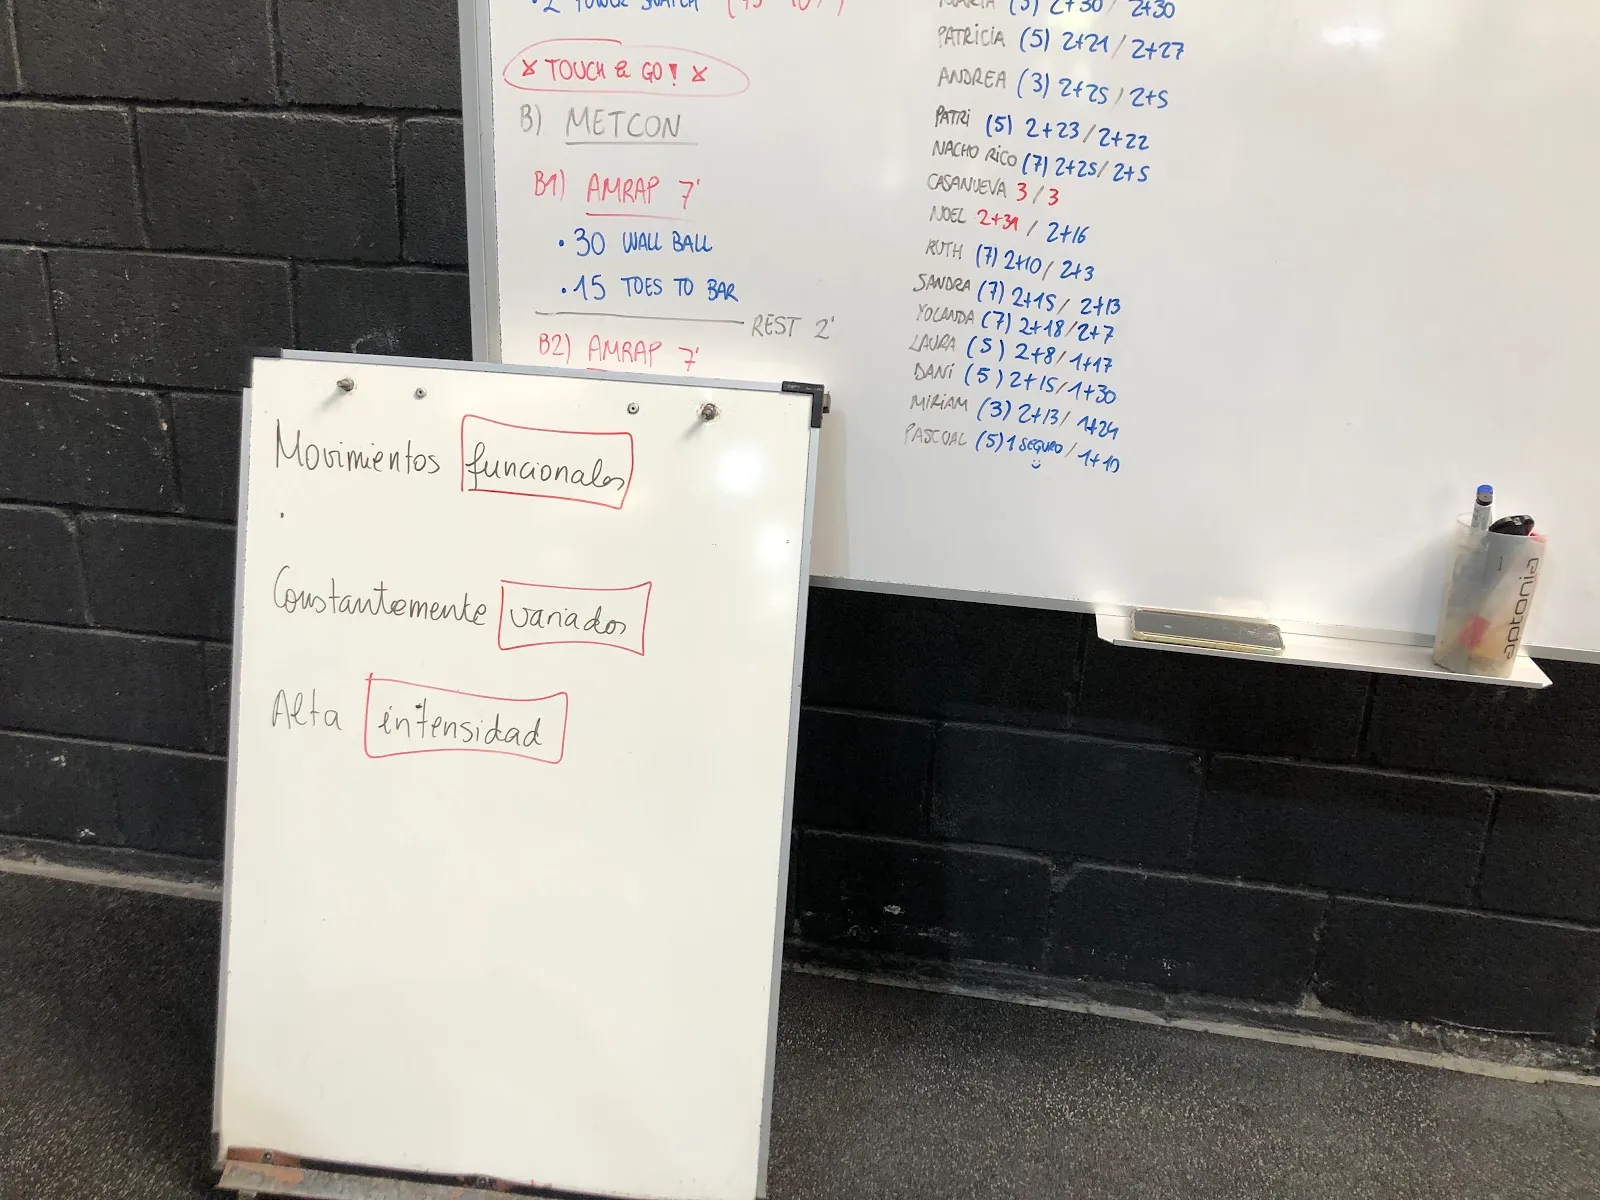 • 2 POWER SNATCH
X TOUCH & GO! X
B) METCON
B1) AMRAP 7'
• 30 WALL BALL
• 15 TOES TO BAR
REST 2'
B2) AMRAP 7'
(5) 2+30 / 2+30
PATRICIA (5) 2+21 / 2+27
ANDREA (3) 2+25 / 2+5
PATRI (5) 2+23 / 2+22
NACHO RICO (7) 2+25 / 2+5
CASANUEVA 3 / 3
NOEL 2+31 / 2+16
RUTH (7) 2+10 / 2+3
SANDRA (7) 2+15 / 2+13
YOLANDA (7) 2+18 / 2+7
LAURA (5) 2+8 / 1+17
DANI (5) 2+15 / 1+30
MIRIAM (3) 2+13 / 1+24
PASCUAL (5) 1 SEGURO / 1+10
Movimientos funcionales
Constantemente variados
Alta intensidad
aptonia